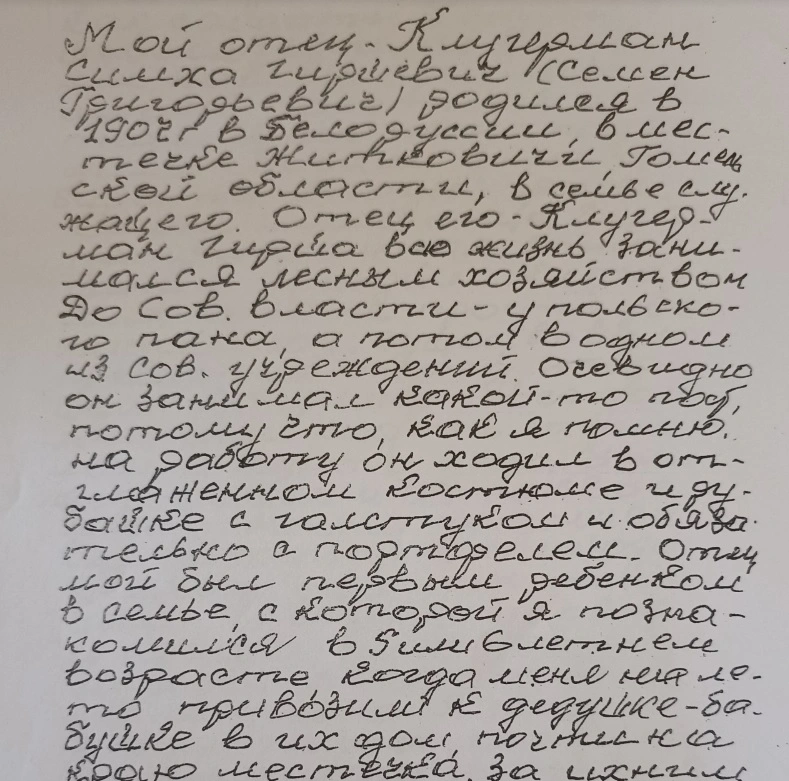 Мой отец - Клугерман
Симха Гиршевич (Семен
Григорьевич) родился в
1907г в Белоруссии, в мес-
течке Житковичи, Гомель
ской области, в семье слу-
жащего. Отец его - Клугер-
ман Гирша всю жизнь зани-
мался лесным хозяйством
До Сов. власти - у польско-
го пана, а потом в одном
из сов. учреждений. Очевидно
он занимал какой-то пост,
потому что, как я помню,
на работу он ходил в от-
глаженном костюме и ру-
башке с галстуком и обяза-
тельно с портфелем. Отец
мой был первым ребенком
в семье, с которой я позна-
комился в 5 или 6 летнем
возрасте когда меня на ле-
то привозили к дедушке-ба-
бушке в их дом, почти на
краю местечка, за ихним